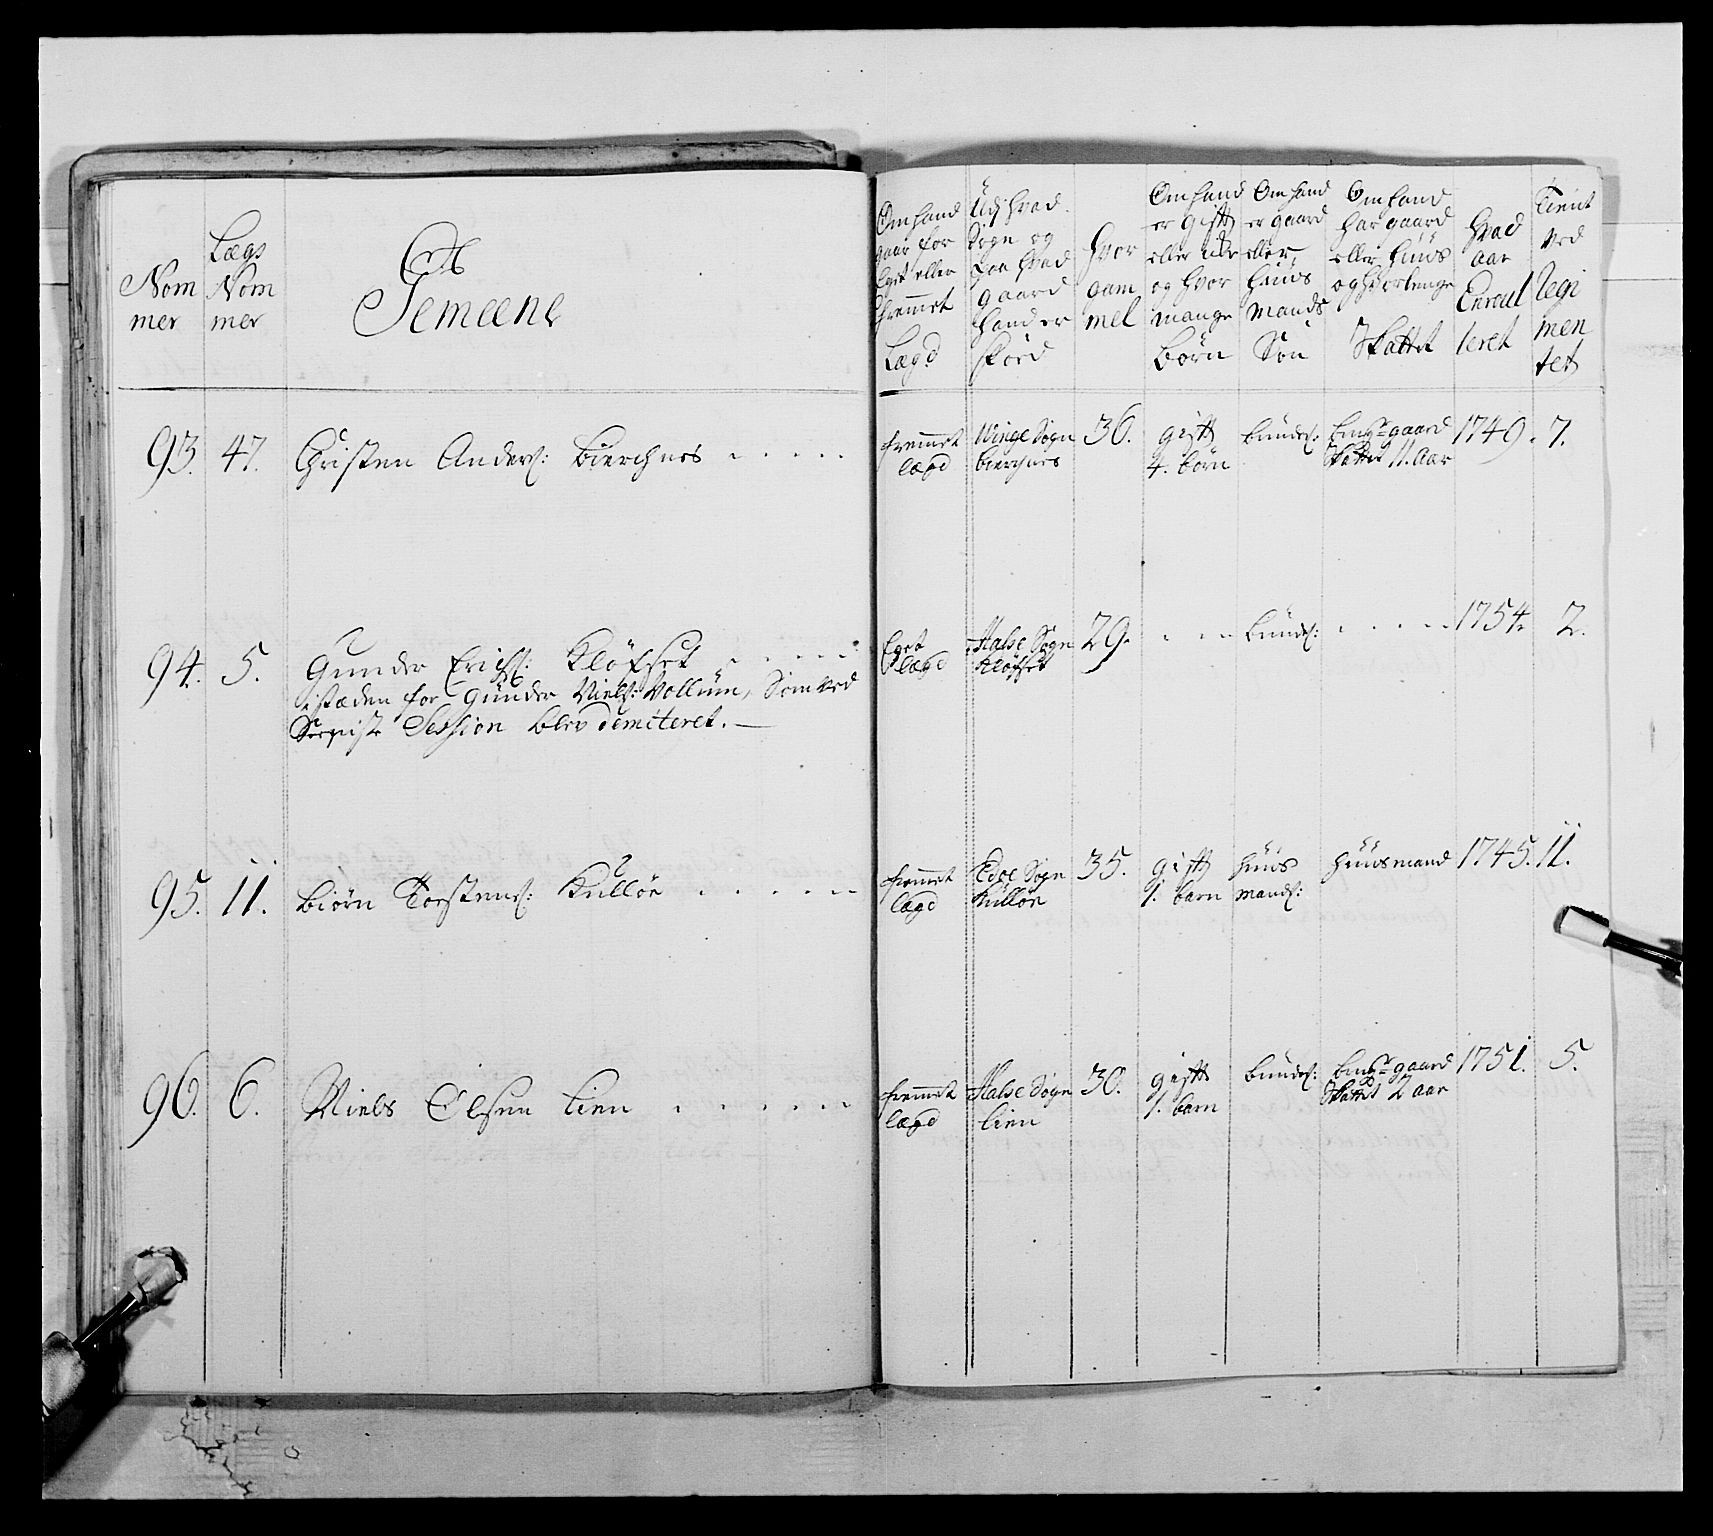 Nom
mer
Lægs
Nom
mer
Gemeene
Om hand
gaar for
Eget eller
fremmet
Lægd
Udj hvad
Sogn og
paa hvad
gaard
hand er
fød
hvor
gam
mel
Om hand
er gift
eller icke
og hvor
mange
børn
Om hand
er gaard
eller
huus
mands
Søn
Om hand
har gaard
eller huus
og hvor lenge
Skattet
hvad
aar
Enroul
leret
Tient
ved
Regi
men
tet
93. 47. Christen Anders: Bierchnes
fremmet
lægd
Winge Sogn
Bierchnes
36.
gift
4. børn
bunds:
gaard
Skattet 11. aar
1749. 7.
94. 5. Gunder Erichs: Kløfset
istæden for Gunder Niels: Vollum, Som ved
Session blev demiteret.
Eget
lægd
Halse Sogn
Kløfset
29.
bunds:
1754. 2.
95. 11. Biørn Torstens: Kulløe
fremmet
lægd
Edøe Sogn
Kulløe
35.
gift
1. barn
huus
mands:
huusmand
1745. 11.
96. 6. Niels Olsen Lien
fremmet
lægd
Halse Sogn
Lien
30.
gift
1. barn
bunds:
gaard
Skattet 2 aar
1751. 5.